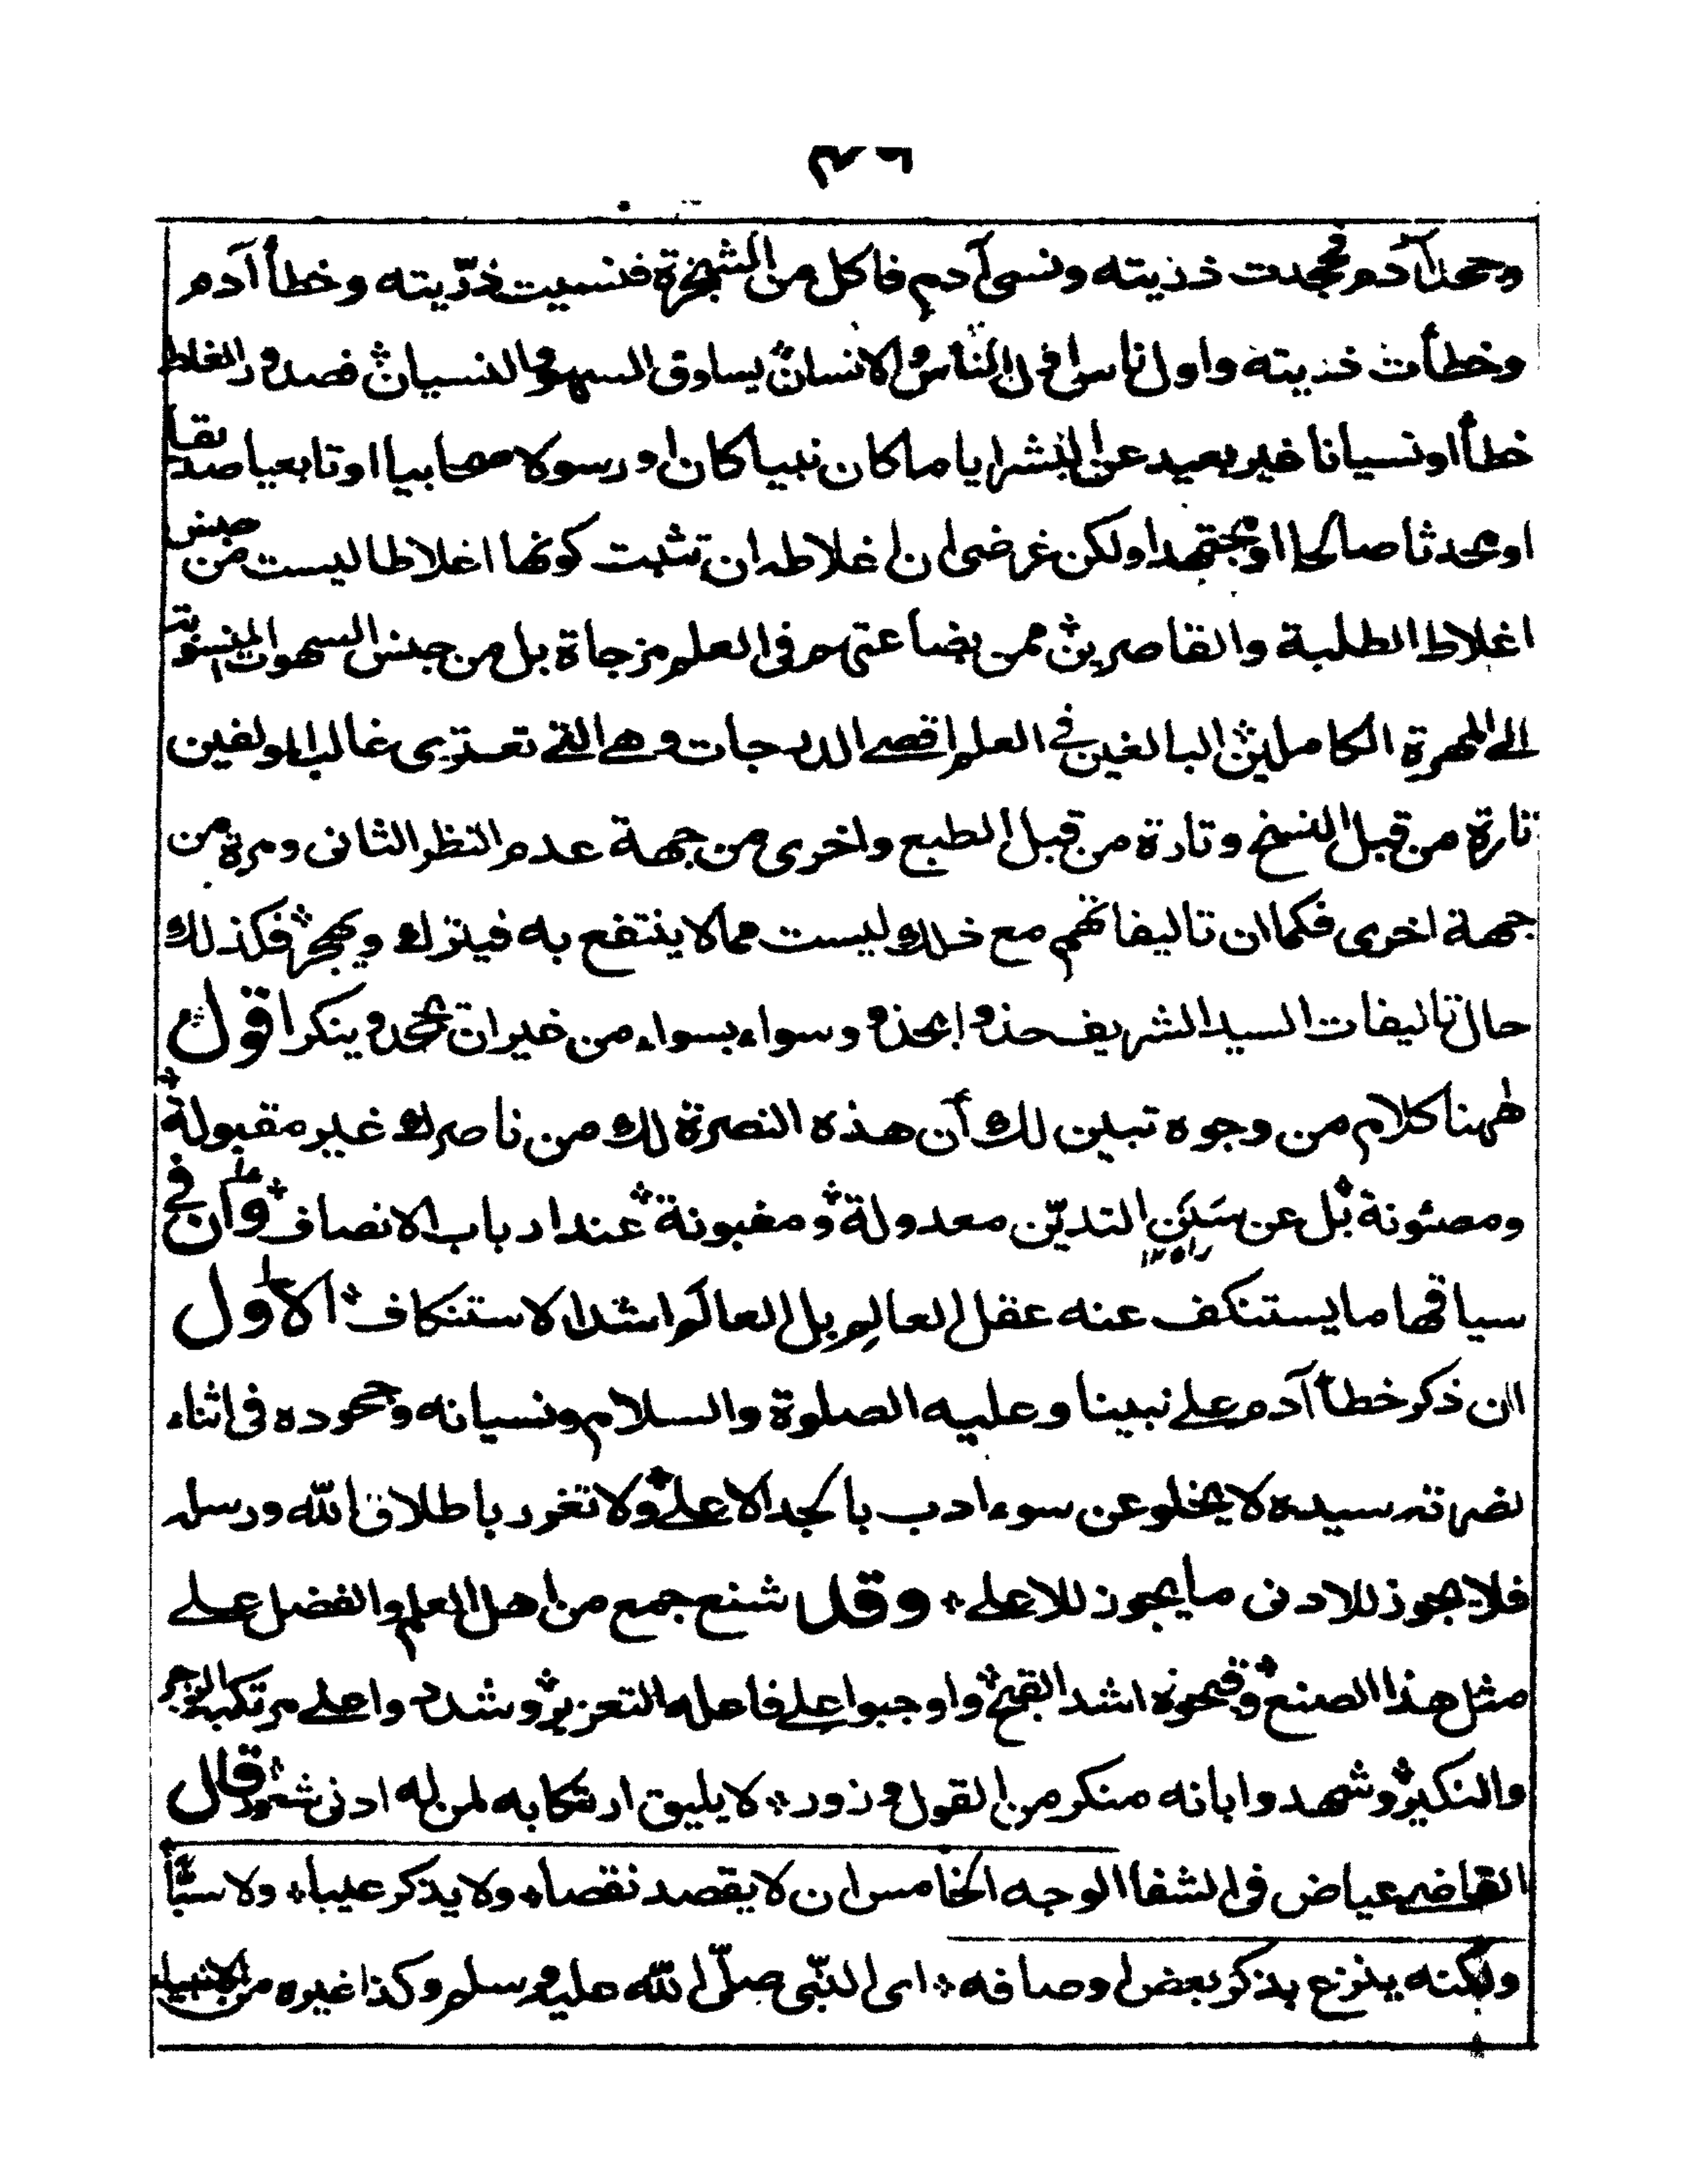 ٤٦
وجحد آدم فجحدت ذريته ونسى آدم فاكل من الشجرة فنسيت ذرّيته وخطأ آدم
وخطأت ذريته واول ناس الناس والانسان يساوق السهو والنسيان فصدور الغلط
خطأ او نسيانا غير بعيد عن البشر ايا ما كان نبيا كان او رسولا صحابيا او تابعيا صديقا
او محدثا صالحا او مجتهدا ولكن غرضى ان اغلاطه ان تثبت كونها اغلاطا ليست من جنس
اغلاط الطلبة والقاصرين ممن بضاعتهم فى العلم مزجاة بل من جنس السهوات المنسوبة
الى المهرة الكاملين البالغين فى العلم اقصى الدرجات وهى التى تعترى غالب المولفين
تارة من قبل النسخ وتارة من قبل الطبع واخرى من جهة عدم النظر الثانى ومرة من
جهة اخرى فكما ان تاليفاتهم مع ذلك ليست مما لا ينتفع به فيترك ويهجر فكذلك
حال تاليفات السيد الشريف حذوا بحذو وسواء بسواء من غير ان تجحد وينكر اقول
ههنا كلام من وجوه تبين لك أن هذه النصرة لك من ناصرك غير مقبولة *
ومصئونة * بل عن سَنَنِ التديّن معدولة * ومغبونة * عند ارباب الانصاف * وان فى
سياقها ما يستنكف عنه عقل العالِم بل العالَم اشد الاستنكاف * الاول
ان ذكر خطأ آدم على نبينا وعليه الصلوة والسلام ونسيانه وجحوده فى اثناء
نصرته سيده لا يخلو عن سوء ادب بالجد الاعلى * ولا تغرر باطلاق الله ورسله
فلا يجوز للادنى ما يجوز للاعلى * وقد شنع جمع من اهل العلم والفضل على
مثل هذا الصنع * وقبحوه اشد القبح * واوجبوا على فاعله التعزير * وشددوا على مرتكبه الزجر
والنكير * وشهدوا بانه منكر من القول وزور * لا يليق ارتكابه لمن له ادنى شعور * قال
القاضى عياض فى الشفا الوجه الخامس ان لا يقصد نقصا * ولا يذكر عيبا * ولا سبّا *
ولكنه ينزع بذكر بعض اوصافه * اى النبّى صلّى الله عليه وسلم وكذا غيره من الانبياء